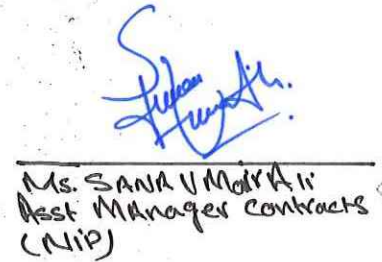 Ms. SANA UMair Ali
Asst MAnager contracts
(NIP)